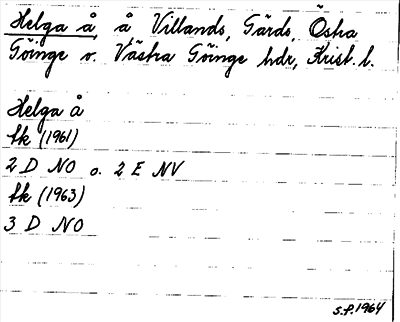 Helga å, å, Villands, Gärds, Östra
Göinge o. Västra Göinge hdr, Krist. l.
Helga å
fk (1961)
2 D NO o. 2 E NV
fk (1963)
3 D NO
S.F. 1964